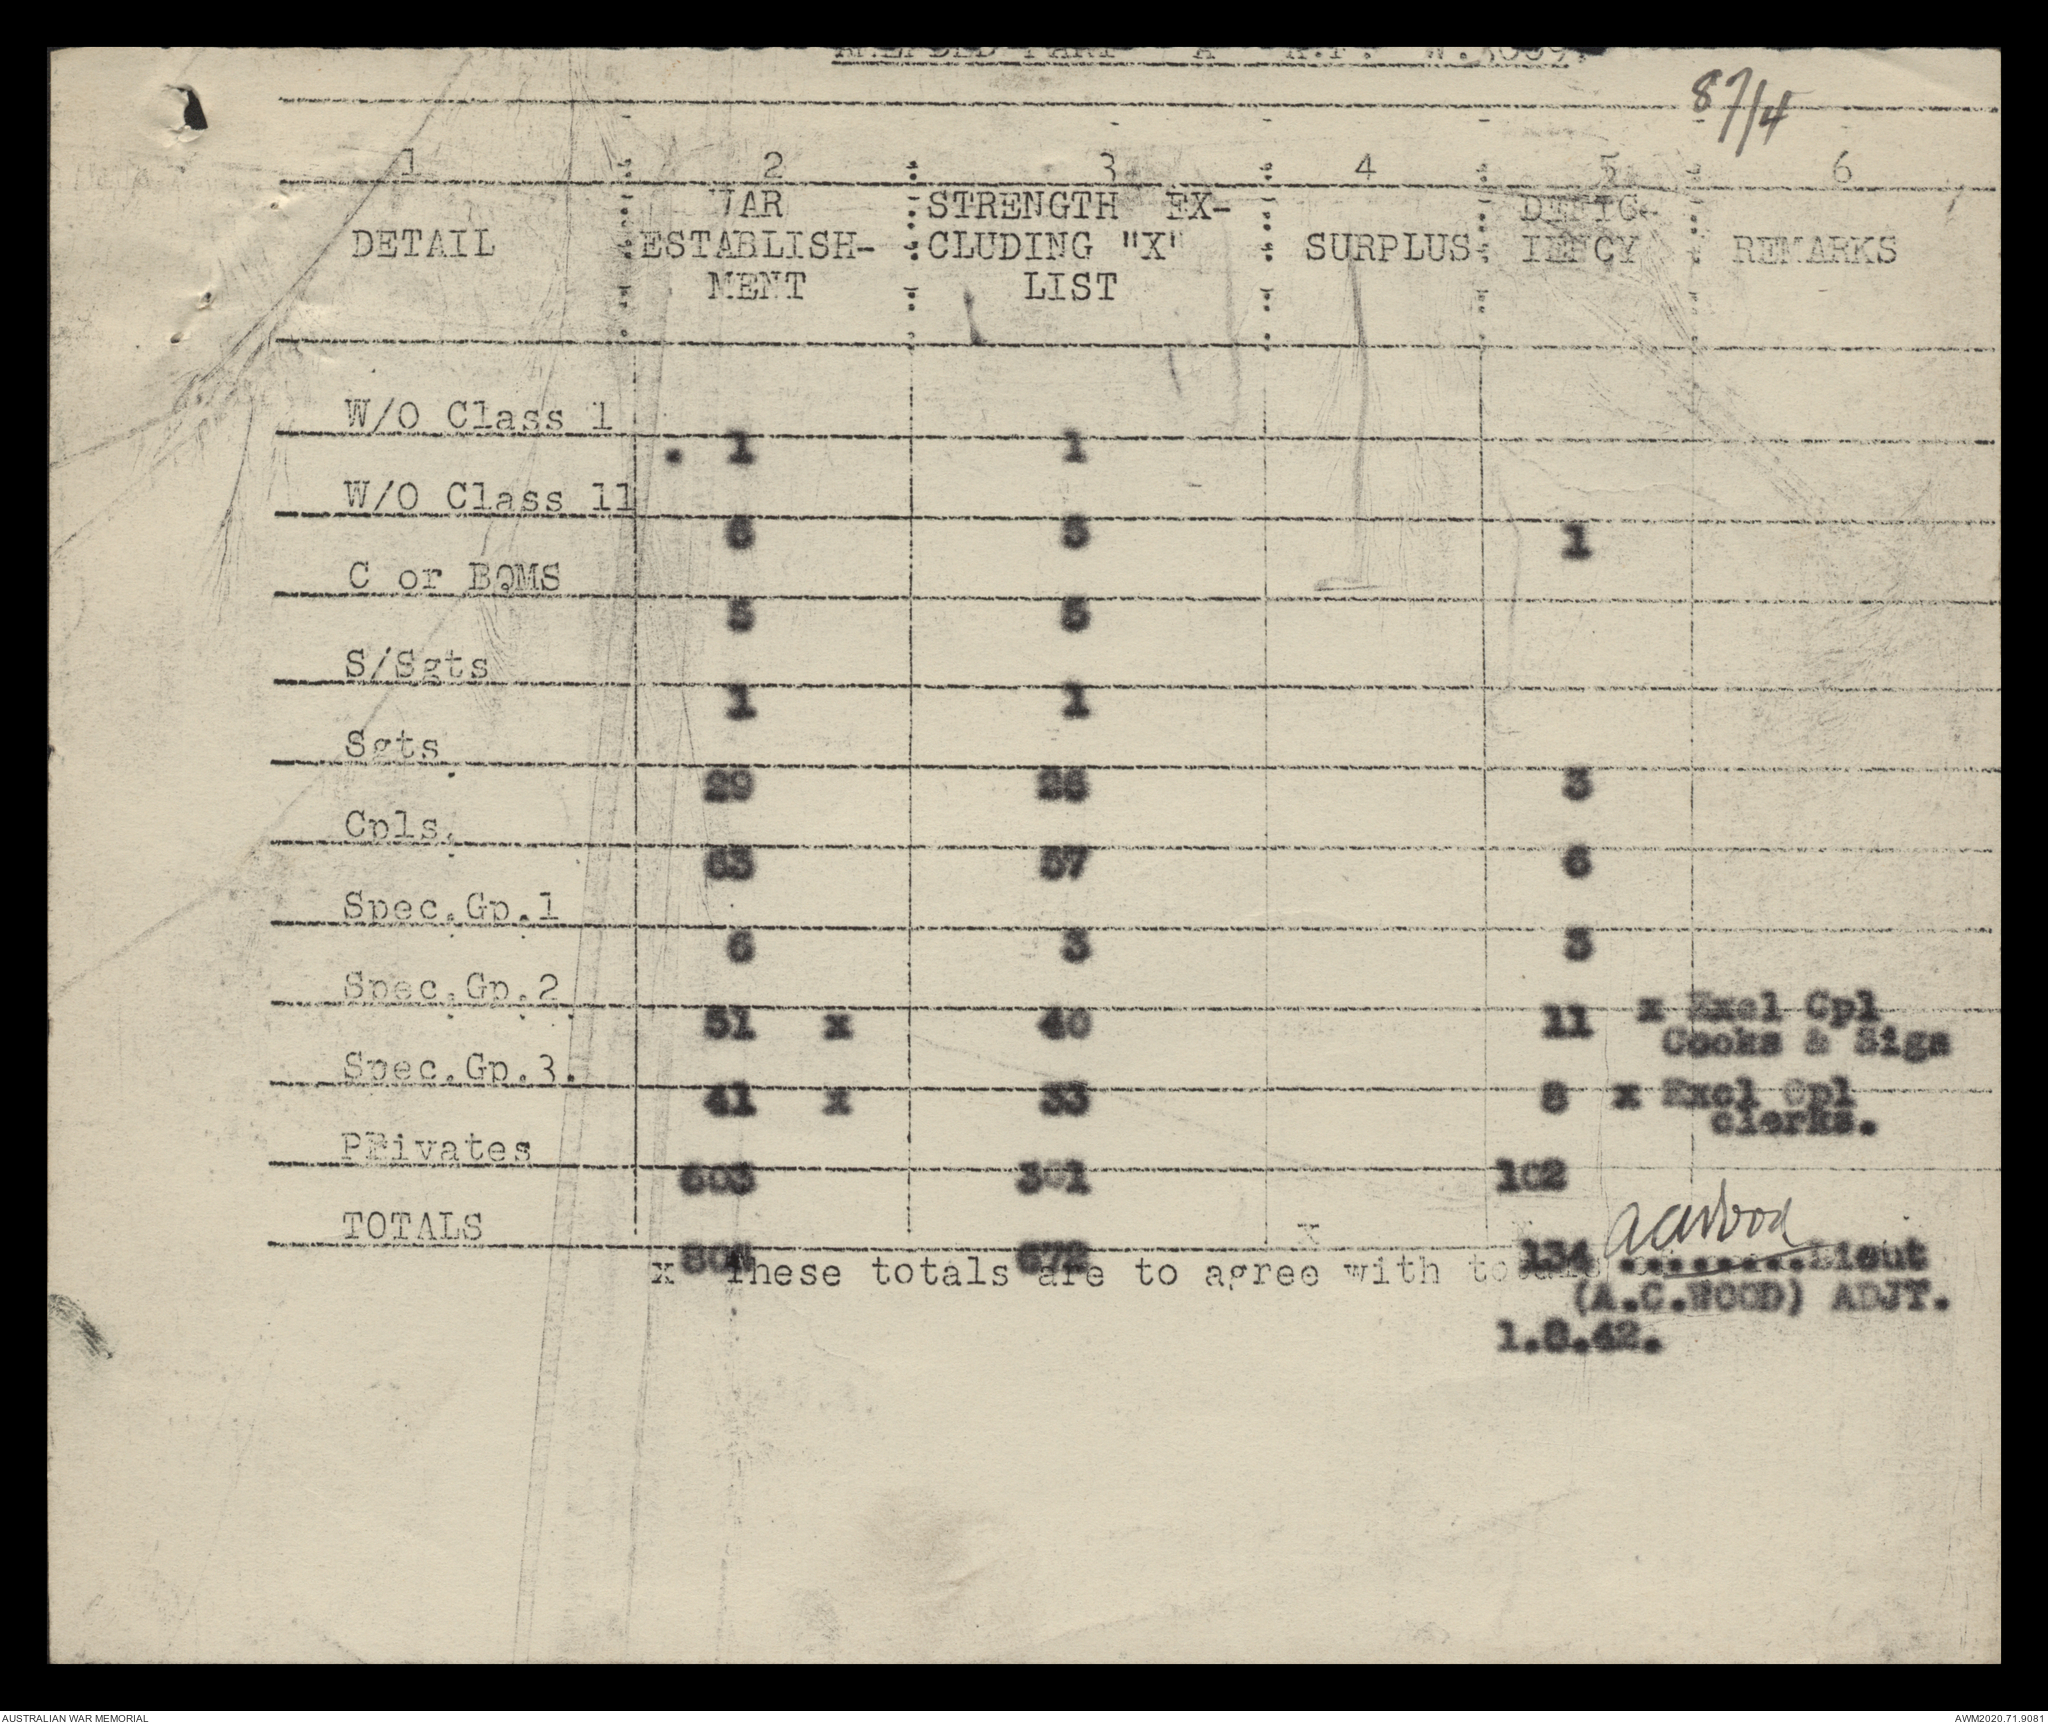 PART A W.3009.
87/4
1 2 3 4 5 6
DETAIL WAR ESTABLISH-MENT STRENGTH EX-CLUDING "X" LIST SURPLUS DEFIC-IENCY REMARKS
W/O Class 1 . 1 1
W/O Class 11 6 5 1
C or BQMS 5 5
S/Sgts 1 1
Sgts. 29 26 3
Cpls. 63 57 6
Spec.Gp.1 6 3 3
Spec.Gp.2 51 x 40 11 x Excl Cpl
Cooks & Sigs
Spec.Gp.3. 41 x 33 8 x Excl Cpl
clerks.
PRivates 603 501 102
TOTALS 806 672 x 134 ACWood ........Lieut
x These totals are to agree with totals
(A.C.WOOD) ADJT.
1.8.42.
AUSTRALIAN WAR MEMORIAL
AWM2020.71.9081